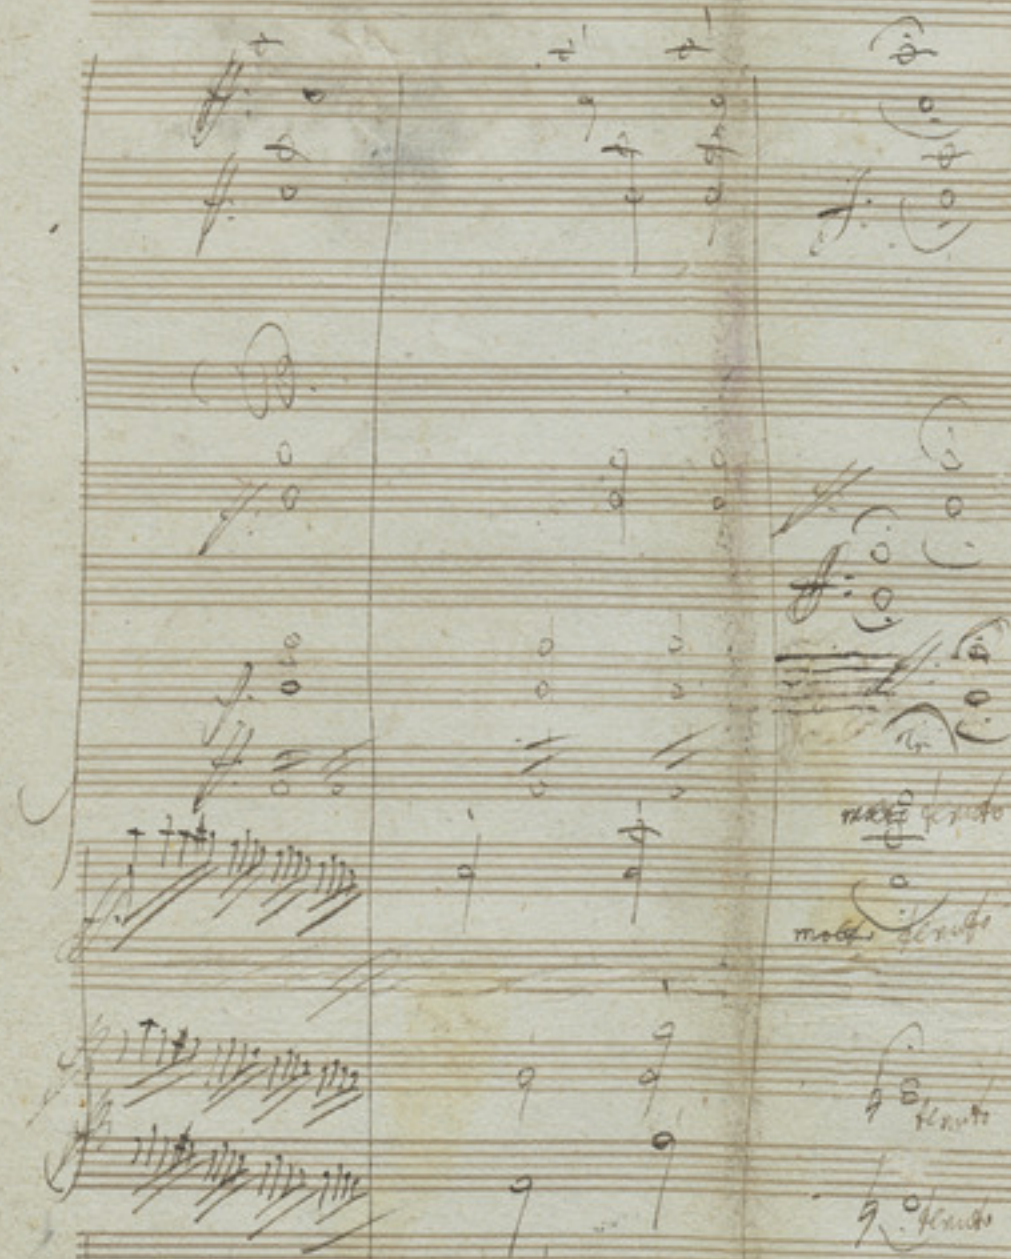 ff:
f:
f:
f:
ff:
f:
ff:
molto tenuto
molto tenuto
tenuto
tenuto